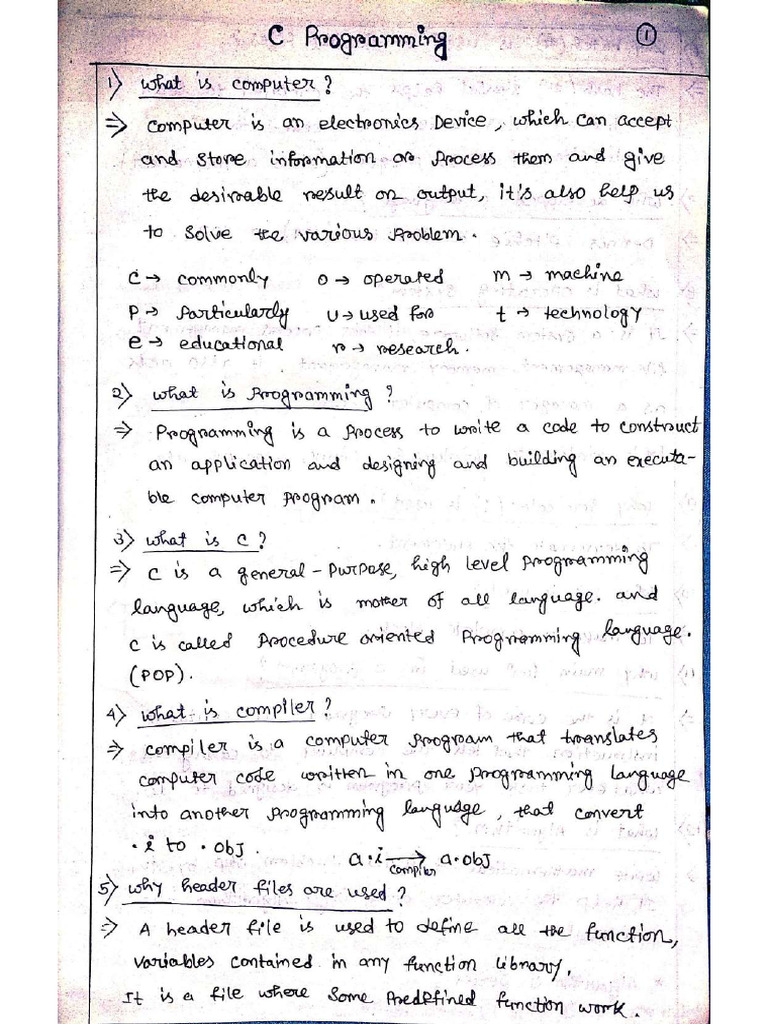 C Programming
1
1) What is computer?
⇒ Computer is an electronics Device, which can accept
and store information or process them and give
the desirable result or output, it's also help us
to solve the various problem.
C → commonly o → operated m → machine
P → Particularly U → used for t → technology
e → educational r → research.
2) What is programming?
⇒ Programming is a process to write a code to construct
an application and designing and building an executa-
ble computer program.
3) What is C?
⇒ C is a general-Purpose, high level programming
language, which is mother of all language. and
C is called Procedure oriented Programming language.
(POP).
4) What is compiler?
⇒ Compiler is a computer program that translates
computer code written in one programming language
into another programming language, that convert
.i to .obj.
a.i → a.obj
compiler
5) Why header files are used?
⇒ A header file is used to define all the function,
variables contained in any function library.
It is a file where some predefined function work.